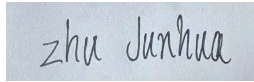 Zhu Junhua